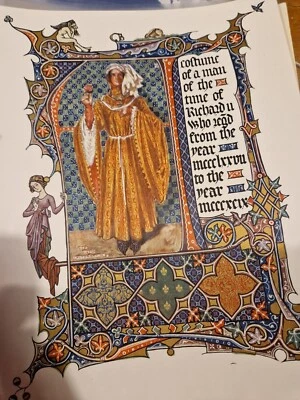 costume
of a man
of the
time of
Richard ii
who regd
from the
year
mccclxxvii
to the
year
mcccxcix